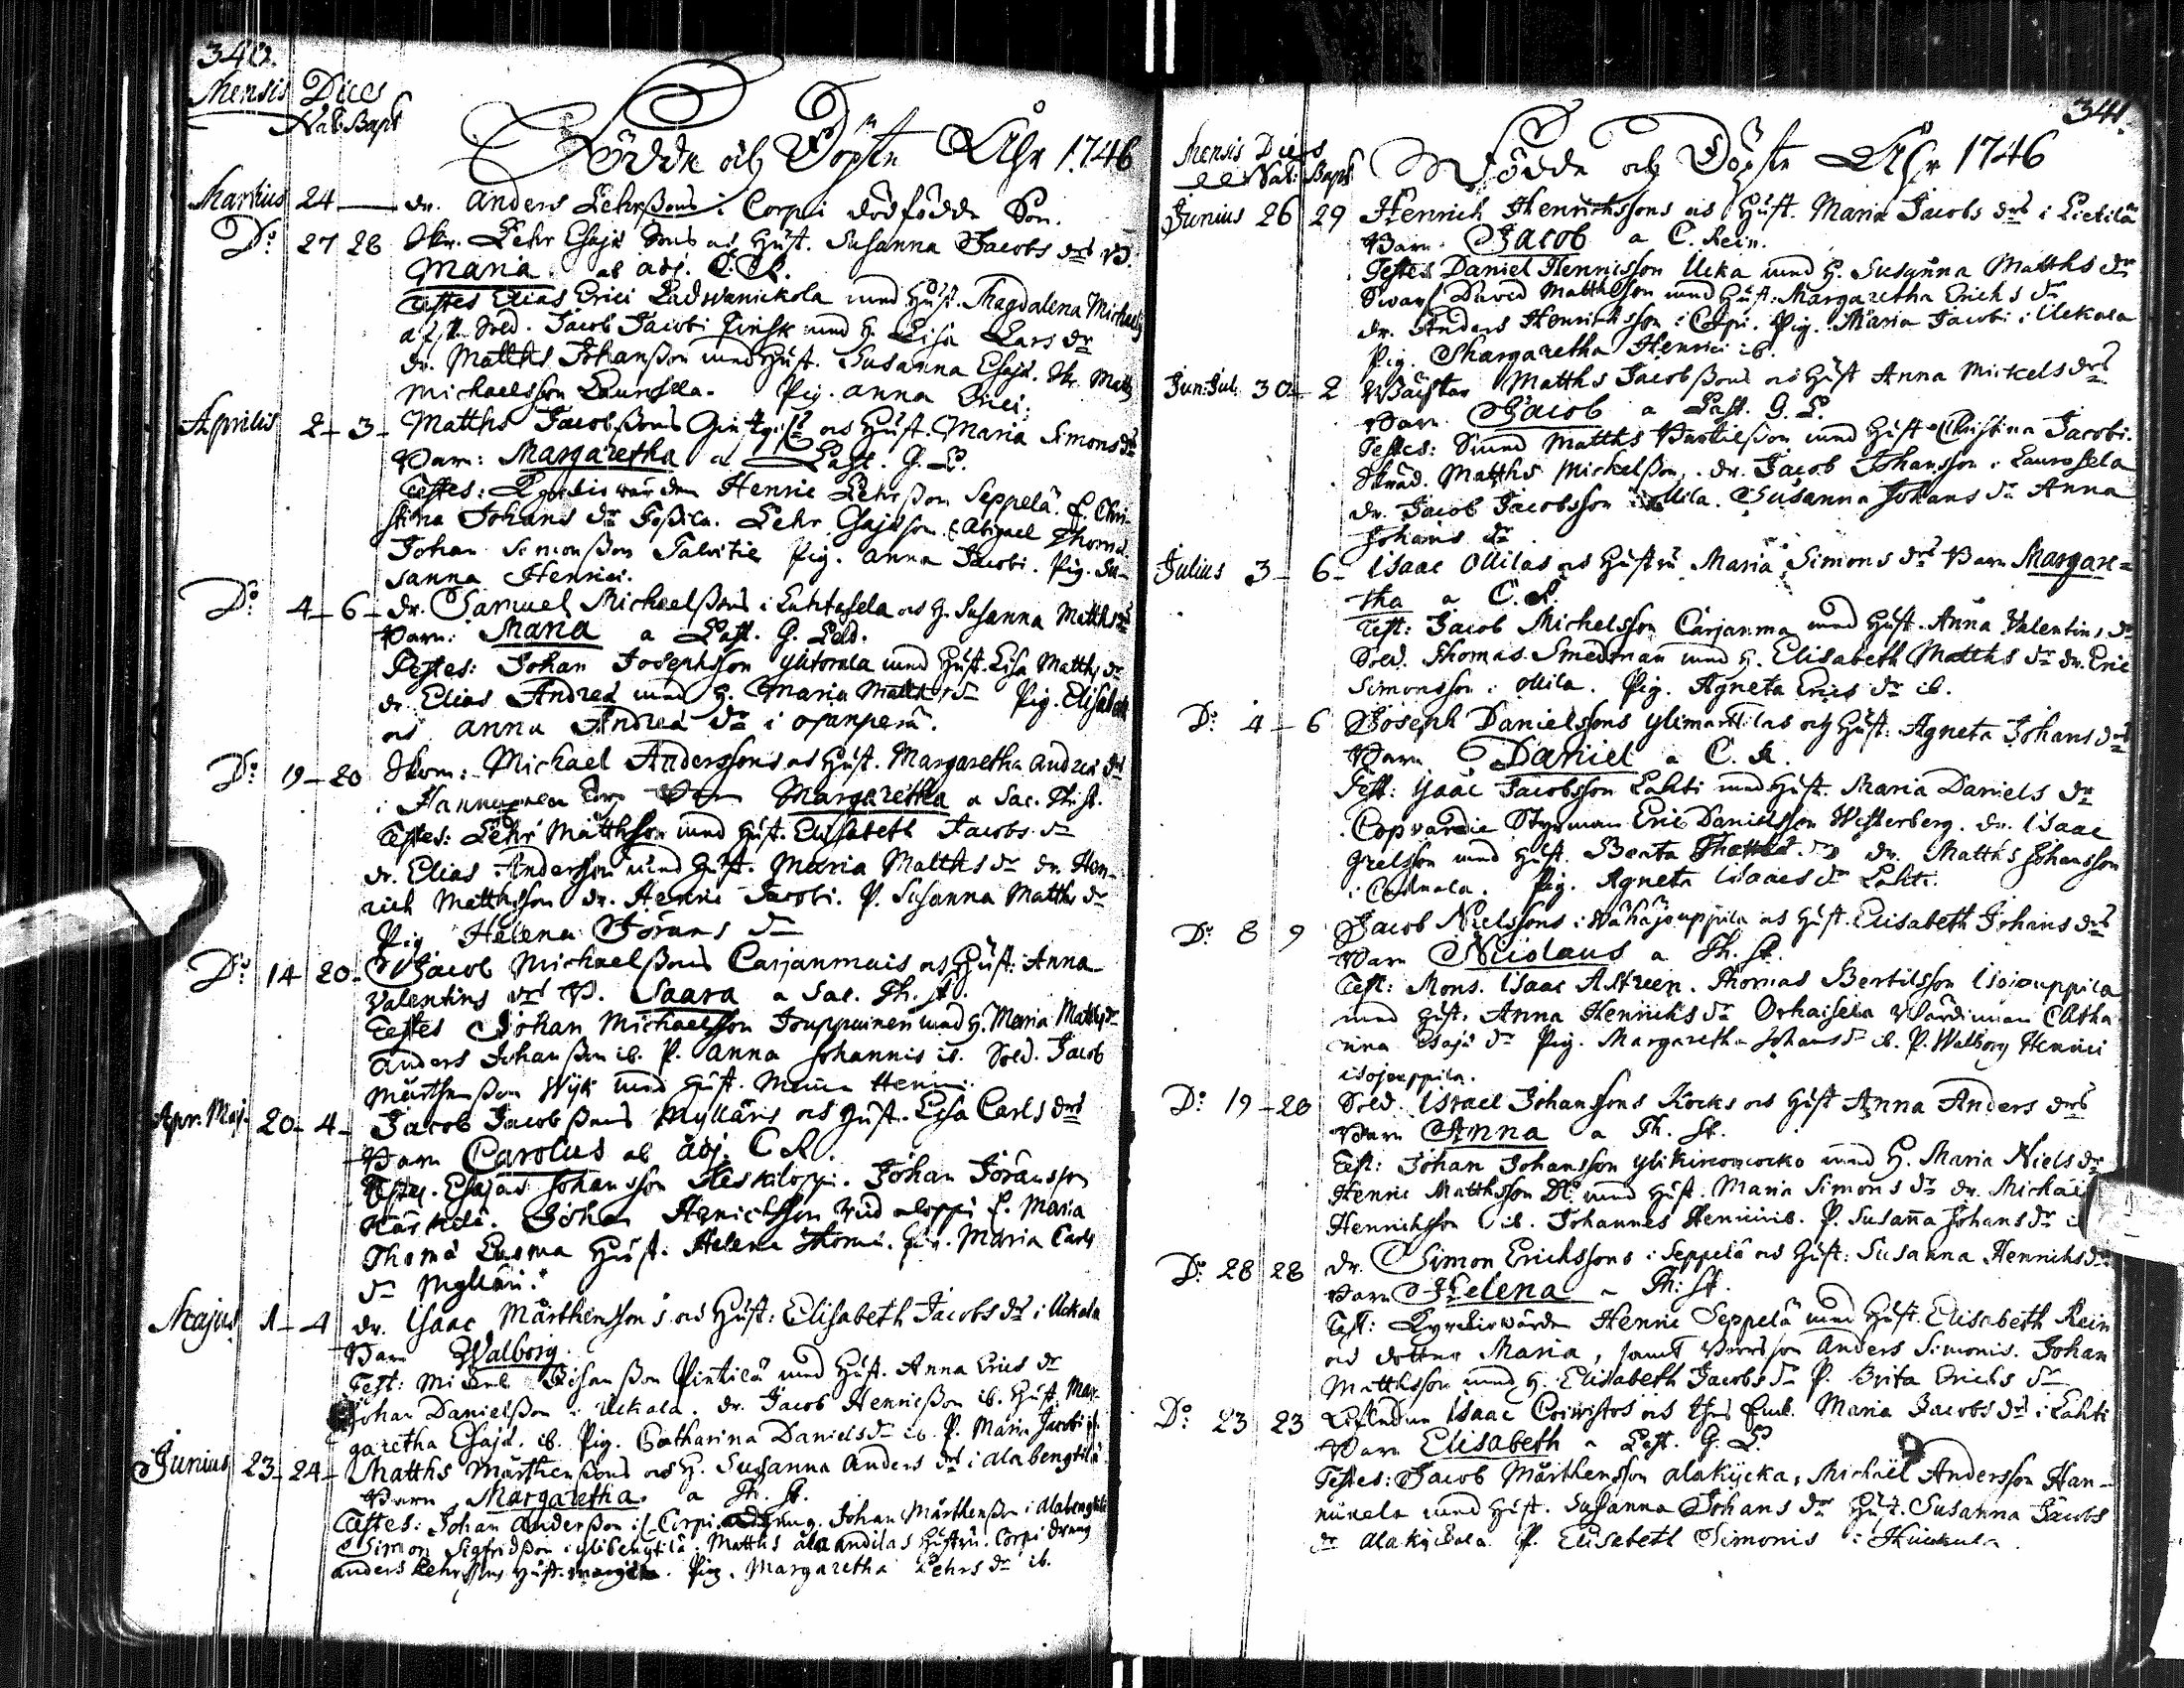 340.
Mensis Dies
Nat. Bapt
Födde och Döpte Åhr 1746
Martius 24 — dr. Anders Lehrssons i Corpi dödfödde Son.
Do. 27 28 Skr. Lehr Esajæ Sons och Hust. Susanna Jacobs drs B.
Maria ab adj. C.R.
Testes Elias Erici Ladwanickola med Hust. Magdalena Michaels
Sold. Jacob Jacobi Finsk med H. Lisa Lars dr
dr. Matths Johansson med Hust. Susanna Esajæ. Skr. Matths
Michaelsson Laurosela. Pig. Anna Erici.
Aprilis 2 - 3 - Matths Jacobssons och Hust. Maria Simons drs
Barn: Margaretha a Past. G. L.
Testes: Kyrckiowärden Henric Lehrsson Seppelä. E. Chri-
stina Johans dr Fossila. Lehr Esajæson. E. Abigael Thomæ
Johan Simonsson Talvitie Pig. Anna Jacobi. Pig. Su-
sanna Henrici.
Do. 4 - 6 - dr. Samuel Michaelssons i Luhtasela och H. Susanna Matths drs
Barn: Maria a Past. G. Led.
Testes: Johan Josephsson ylitorala med Hust. Lisa Matths dr
dr. Elias Andreæ med H. Maria Matths dr Pig. Elisabeth
och Anna Andreæ dr i ojanperä.
Do. 19 - 20 Skom: Michael Anderssons och Hust. Margaretha Andreæ drs
i Hannukela Barn Margaretha a Sac. Th. St.
Testes: Lehr Matthsson med Hust. Elisabeth Jacobs dr
dr. Elias Andersson med Hust. Maria Matths dr dr. Hen-
rich Matthsson dr. Henric Jacobi. P. Susanna Matths dr
Pig Helena Jörans dr
Do. 14 20 - Jacob Michaelssons Carjanmais och Hust: Anna
Valentins drs B. Saara a Sac. Th. St.
Testes Johan Michaelsson Jouppainen med H. Maria Matths dr
Anders Johansson ib. P. Anna Johannis ib. Sold. Jacob
Mårthensson Wijk med Hust. Henrici.
Apr. Maj. 20 - 4 - Jacob Jacobssons Myllärs och Hust. Lisa Carls drs
Barn Carolus ab adj. C R.
Testes. Esajas Johansson Keskiloppi. Johan Jöransson
Kärkelä. Johan Henricksson E. Maria
Thomæ Luoma Hust. Helena Thomæ. Maria Carls
dr Mylläri.
Majus 1 - 4 dr. Isaac Mårthenssons och Hust: Elisabeth Jacobs drs i Uckala
Barn Walborg.
Test: Michel Johansson Pintilä med Hust. Anna Erics dr
Johan Danielsson i Uckala. dr. Jacob Henricsson ib. Hust. Mar-
garetha Esajæ. ib. Pig. Catharina Daniels dr ib. P. Maria Jacobi ib.
Junius 23 - 24 - Matths Mårthenssons och H. Susanna Anders drs i alabengtilä
Barn Margaretha. a Th. St.
Testes: Johan Andersson i Corpi Johan Mårthensson i Alabengtilä
Simon Sigfridsson i ylibengtilä. Matths ala andilas Hustru. Corpi dräng
Anders Lehrssons Hust. Pig. Margaretha Lehrs dr ib.
341.
Mensis Dies
Nat. Bapt
Födde och Döpte Åhr 1746
Junius 26 29 Henrich Henrichssons och Hust. Maria Jacobs drs i Lietilä
Barn. Jacob a C. Rein.
Testes Daniel Henricsson Ucka med H. Susanna Matths dr
Swar David Matthsson med Hust: Margaretha Erichs dr
dr. Anders Henrichsson i Corpi. Pig. Maria Jacobi i Uckala
Pig. Margaretha Henrici ib.
Jun: Jul. 30 - 2 Matths Jacobssons och Hust Anna Mickels drs
Barn. Jacob a Past. G. L.
Testes: Smed Matths Bertilsson med Hust Christina Jacobi.
Skräd. Matths Mickelsson. dr. Jacob Johansson i Laurosela
dr. Jacob Jacobsson i Ollila. Susanna Johans dr Anna
Johans dr
Julius 3 - 6 - Isaac Ollilas och Hustru Maria Simons drs Barn Margare=
tha a C. R.
Test: Jacob Michelsson Carjanma med Hust. Anna Valentins dr
Sold. Thomas Smedman med H. Elisabeth Matths dr dr. Eric
Simonsson i Ollila. Pig. Agneta Erics dr ib.
Do. 4 - 6 Joseph Danielssons ylimarttilas och Hust: Agneta Johans drs
Barn Daniel a C. R.
Test: Isaac Jacobsson Lahti med Hust. Maria Daniels dr
Copvardie Styrman Eric Danielsson Westerberg. dr. Isaac
Grelsson med Hust. Beata dr. Matths Johansson
i Pig. Agneta Isaacs dr Lahti.
Do. 8 9 Jacob Nielssons i Wähäjouppila och Hust. Elisabeth Johans drs
Barn Nicolaus a Th. St.
Test: Mons. Isaac Astreen. Thomas Bertilsson Isojouppila
med Hust. Anna Henrichs dr Orhaisela Catha-
rina Esajæ dr Pig. Margaretha Johans dr ib. P. Walborg Henrici
isojouppila.
Do. 19 - 20 Sold. Israel Johanssons Kocks och Hust Anna Anders drs
Barn Anna a Th. St.
Test: Johan Johansson med H. Maria Niels dr
Henric Matthsson Do. med Hust. Maria Simons dr dr. Michael
Henrichsson ib. Johannes Henrici ib. P. Susanna Johans dr
Do. 28 28 dr. Simon Erichssons i Seppelä och Hust: Susanna Henrichs drs
Barn Helena a Th: St.
Test: Kyrckiowärden Henric Seppelä med Hust. Elisabeth Rein
och dotter Maria, samt Anders Simonis. Johan
Matthsson med H. Elisabeth Jacobs dr P. Brita Erichs dr
Do. 23 23 Isaac Coivistos och Maria Jacobs drs i Lahti
Barn Elisabeth a Past. G. L.
Testes: Jacob Mårthensson alakycka, Michaël Andersson Han-
nukela med Hust. Susanna Johans dr Hust. Susanna Jacobs
dr Alakyckala P. Elisabeth Simonis i